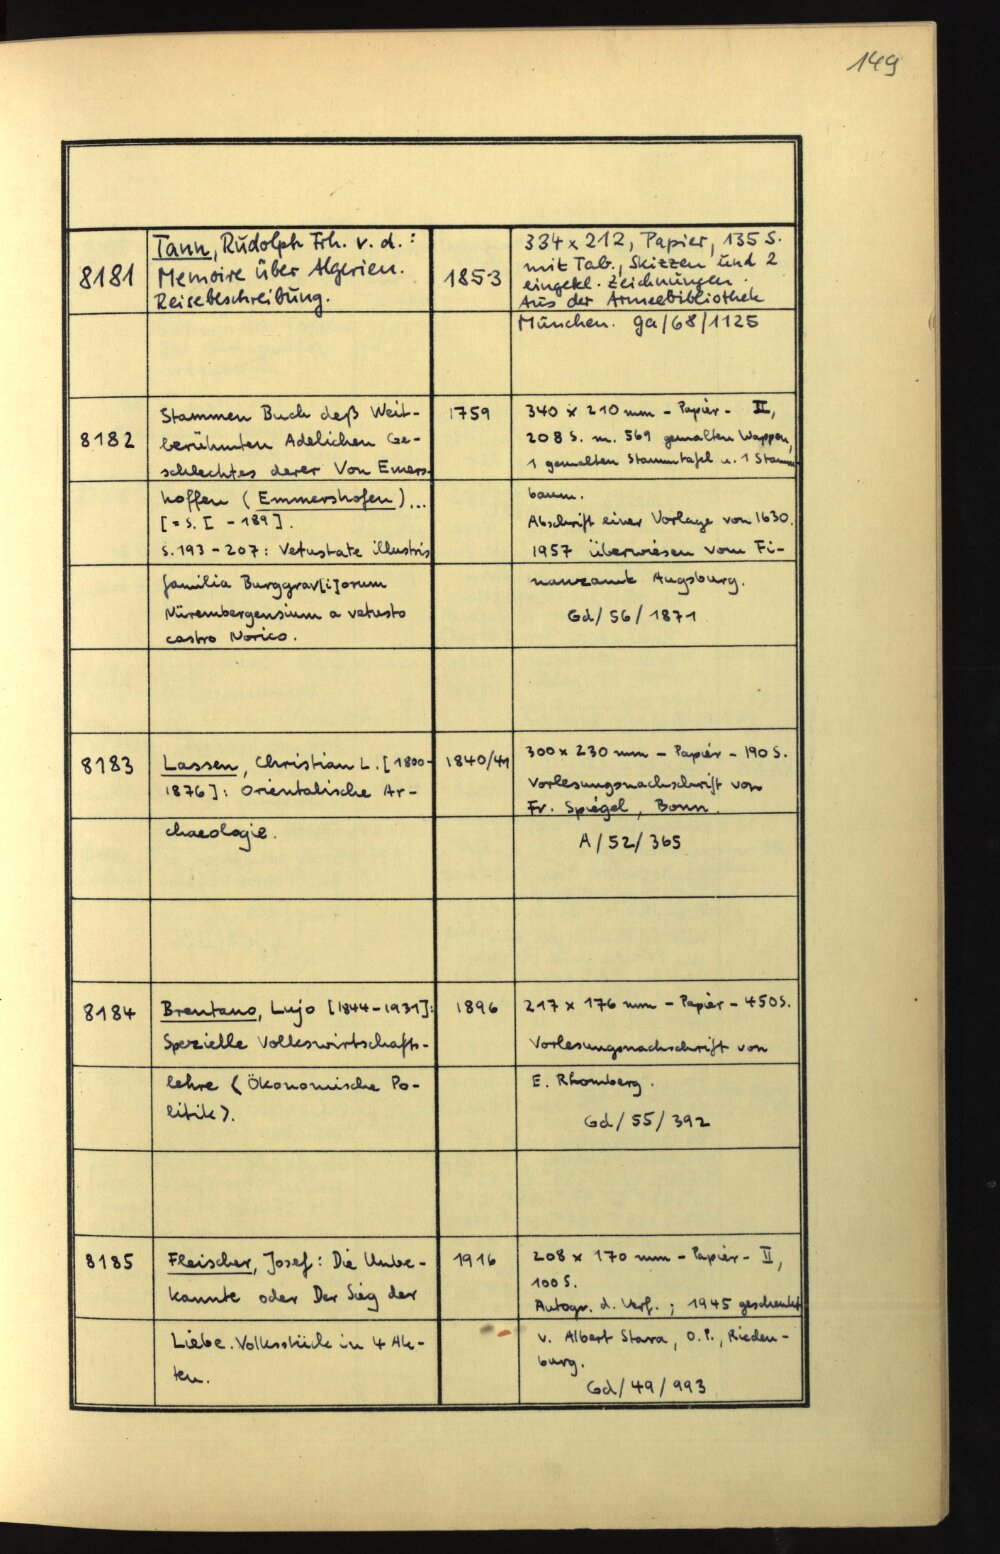 149
8181
Tann, Rudolph Frh. v. d.:
Memoire über Algerien.
Reisebeschreibung.
1853
334 x 212, Papier, 135 S.
mit Tab., Skizzen und 2
eingekl. Zeichnungen.
Aus der Armeebibliothek
München. ga/68/1125
8182
Stammen Buch deß Weit-
berühmten Adelichen Ge-
schlechtes derer Von Emers-
hoffen (Emmershofen)...
[= S. [ - 189].
S. 193 - 207: Vetustate illustris
familia Burggrav[i]orum
Nürembergensium a vetusto
castro Norico.
1759
340 x 210 mm - Papier - II,
208 S. m. 569 gemalten Wappen,
1 gemalten Stammtafel u. 1 Stamm-
baum.
Abschrift einer Vorlage von 1630.
1957 überwiesen vom Fi-
nanzamt Augsburg.
Gd/ 56/ 1871
8183
Lassen, Christian L. [1800-
1876]: Orientalische Ar-
chaeologie.
1840/41
300 x 230 mm - Papier - 190 S.
Vorlesungsnachschrift von
Fr. Spiegel, Bonn.
A/52/365
8184
Brentano, Lujo [1844-1931]:
Spezielle Volkswirtschafts-
lehre (Ökonomische Po-
litik).
1896
217 x 176 mm - Papier - 450 S.
Vorlesungsnachschrift von
E. Rhomberg.
Gd/55/392
8185
Fleischer, Josef: Die Unbe-
kannte oder Der Sieg der
Liebe. Volksstück in 4 Ak-
ten.
1916
208 x 170 mm - Papier - II,
100 S.
Autogr. d. Verf.; 1945 geschenkt
v. Albert Stara, O.P., Rieden-
burg.
Gd/49/993